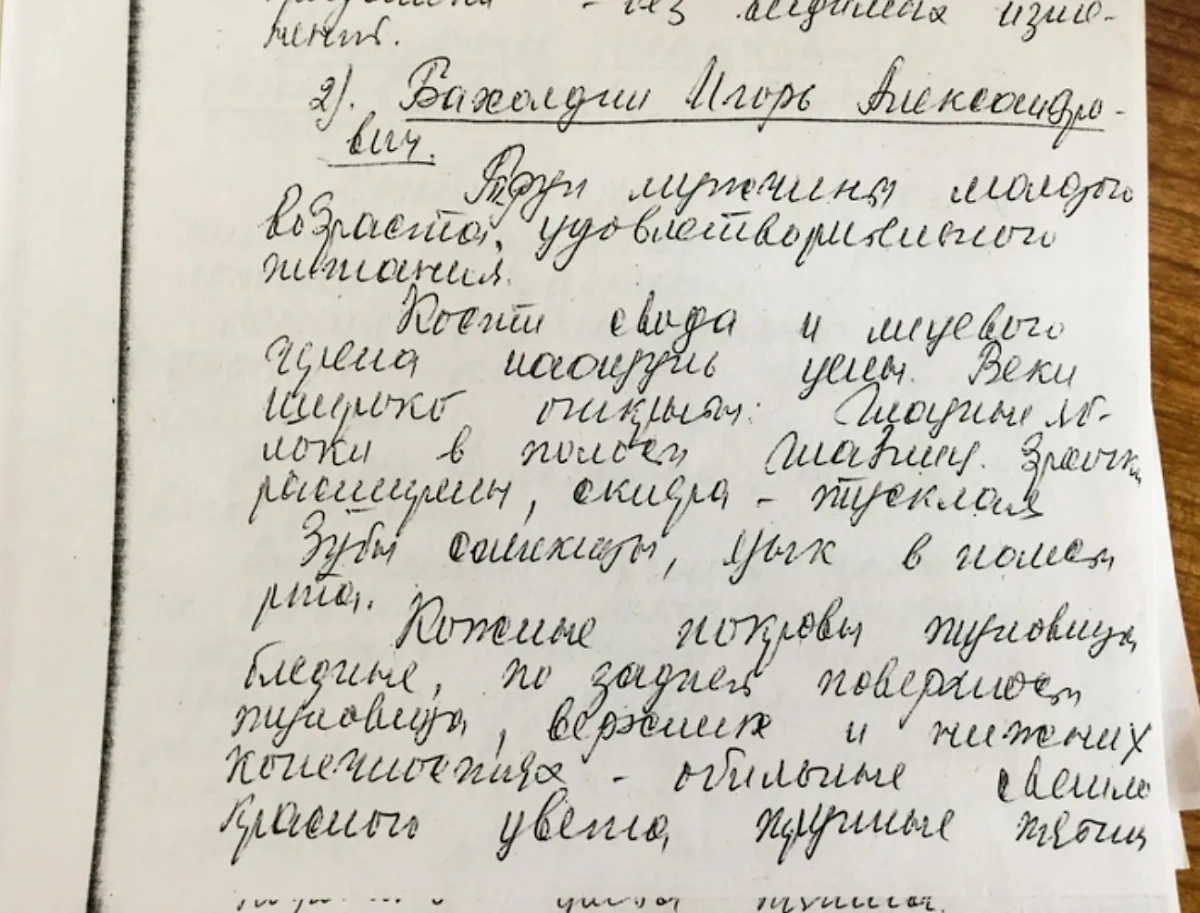 - без видимых изме-
нений.
2). Бахолдин Игорь Александро-
вич.
Труп мужчины молодого
возраста, удовлетворительного
питания.
Кости свода и лицевого
черепа наощупь целы. Веки
широко открыты. Глазные яб-
локи в полости глазниц. Зрачки
расширены, склера - тусклая
Зубы сомкнуты, язык в полости
рта.
Кожные покровы туловища
бледные, по задней поверхности
туловища, верхних и нижних
конечностях - обильные светло
красного цвета, крупные пятна